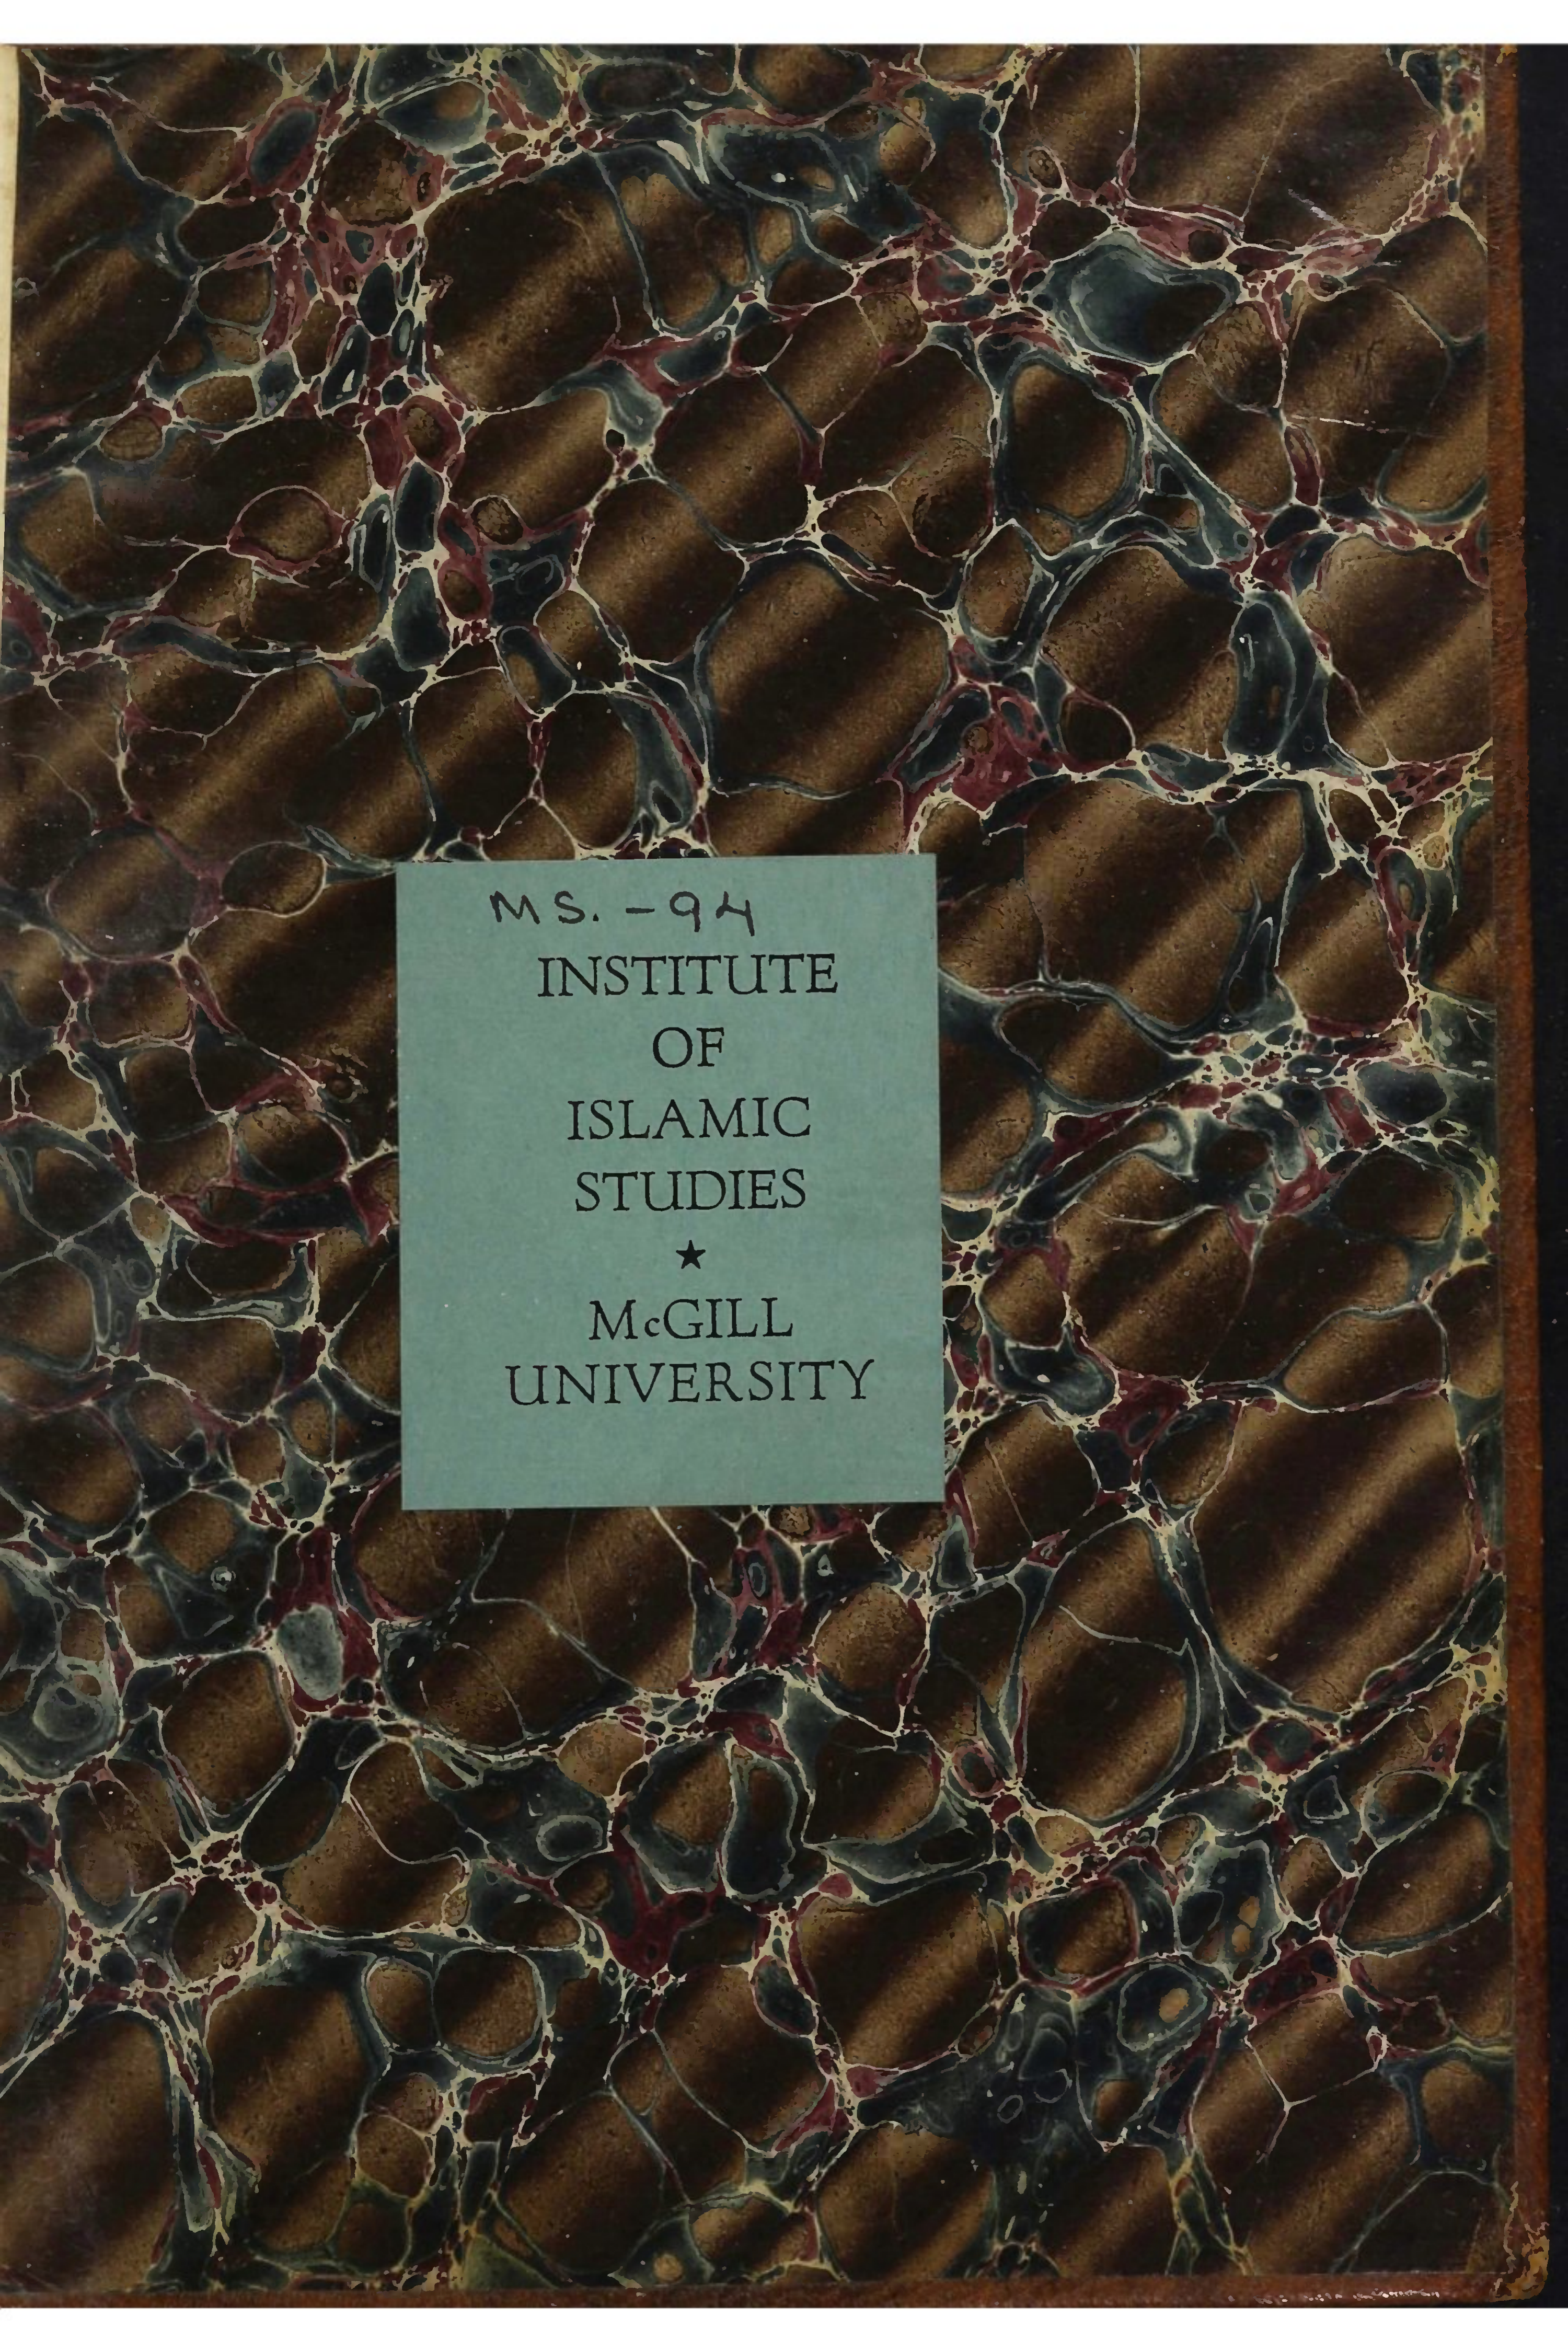 MS. - 94
INSTITUTE
OF
ISLAMIC
STUDIES
★
McGILL
UNIVERSITY